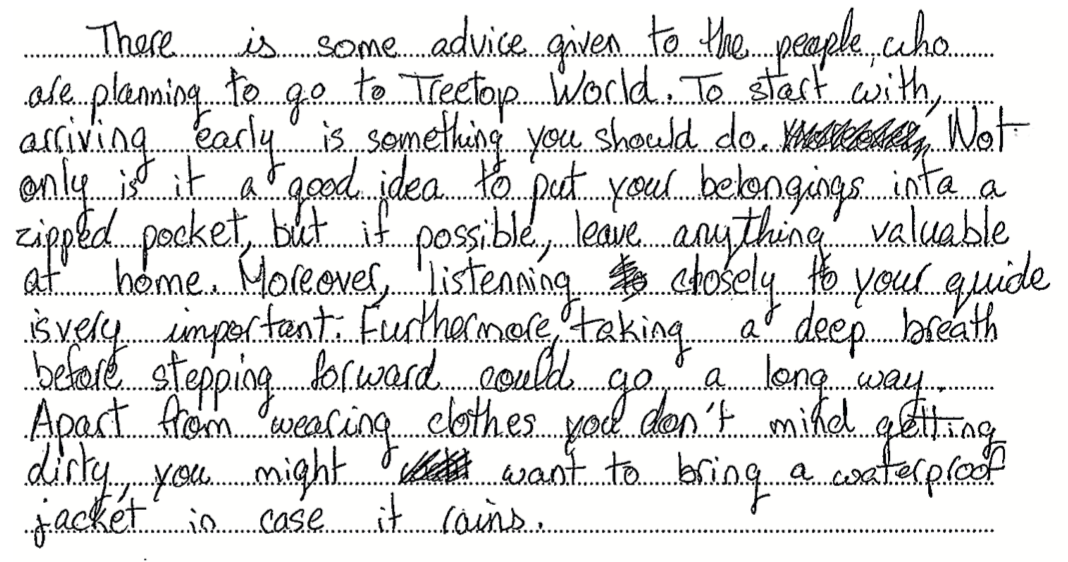 There is some advice given to the people who
are planning to go to Treetop World. To start with,
arriving early is something you should do. Not
only is it a good idea to put your belongings into a
zipped pocket, but if possible, leave anything valuable
at home. Moreover, listenning closely to your guide
is very important. Furthermore, taking a deep breath
before stepping forward could go a long way.
Apart from wearing clothes you don't mind getting
dirty, you might want to bring a waterproof
jacket in case it rains.